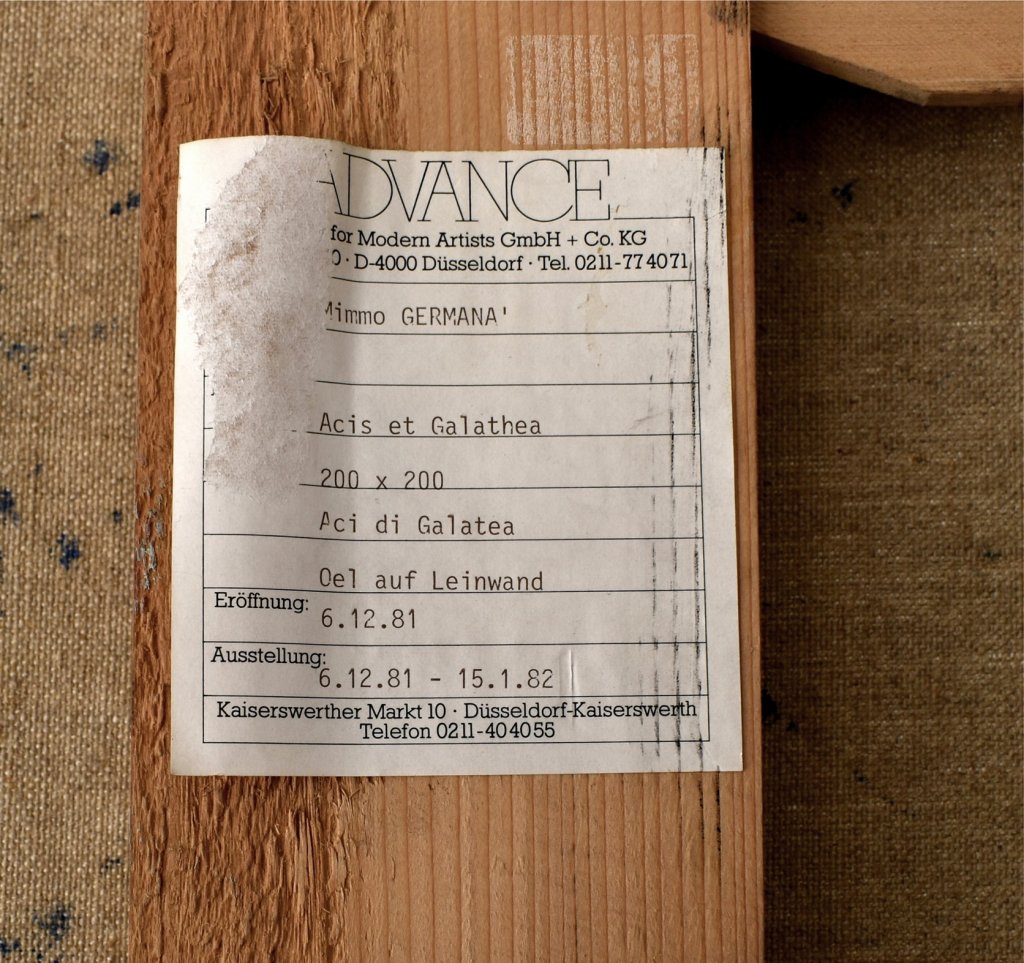 ADVANCE
for Modern Artists GmbH + Co. KG
0 · D-4000 Düsseldorf · Tel. 0211-77 40 71
Mimmo GERMANA'
Acis et Galathea
200 x 200
Aci di Galatea
Oel auf Leinwand
Eröffnung: 6.12.81
Ausstellung: 6.12.81 - 15.1.82
Kaiserswerther Markt 10 · Düsseldorf-Kaiserswerth
Telefon 0211-40 40 55